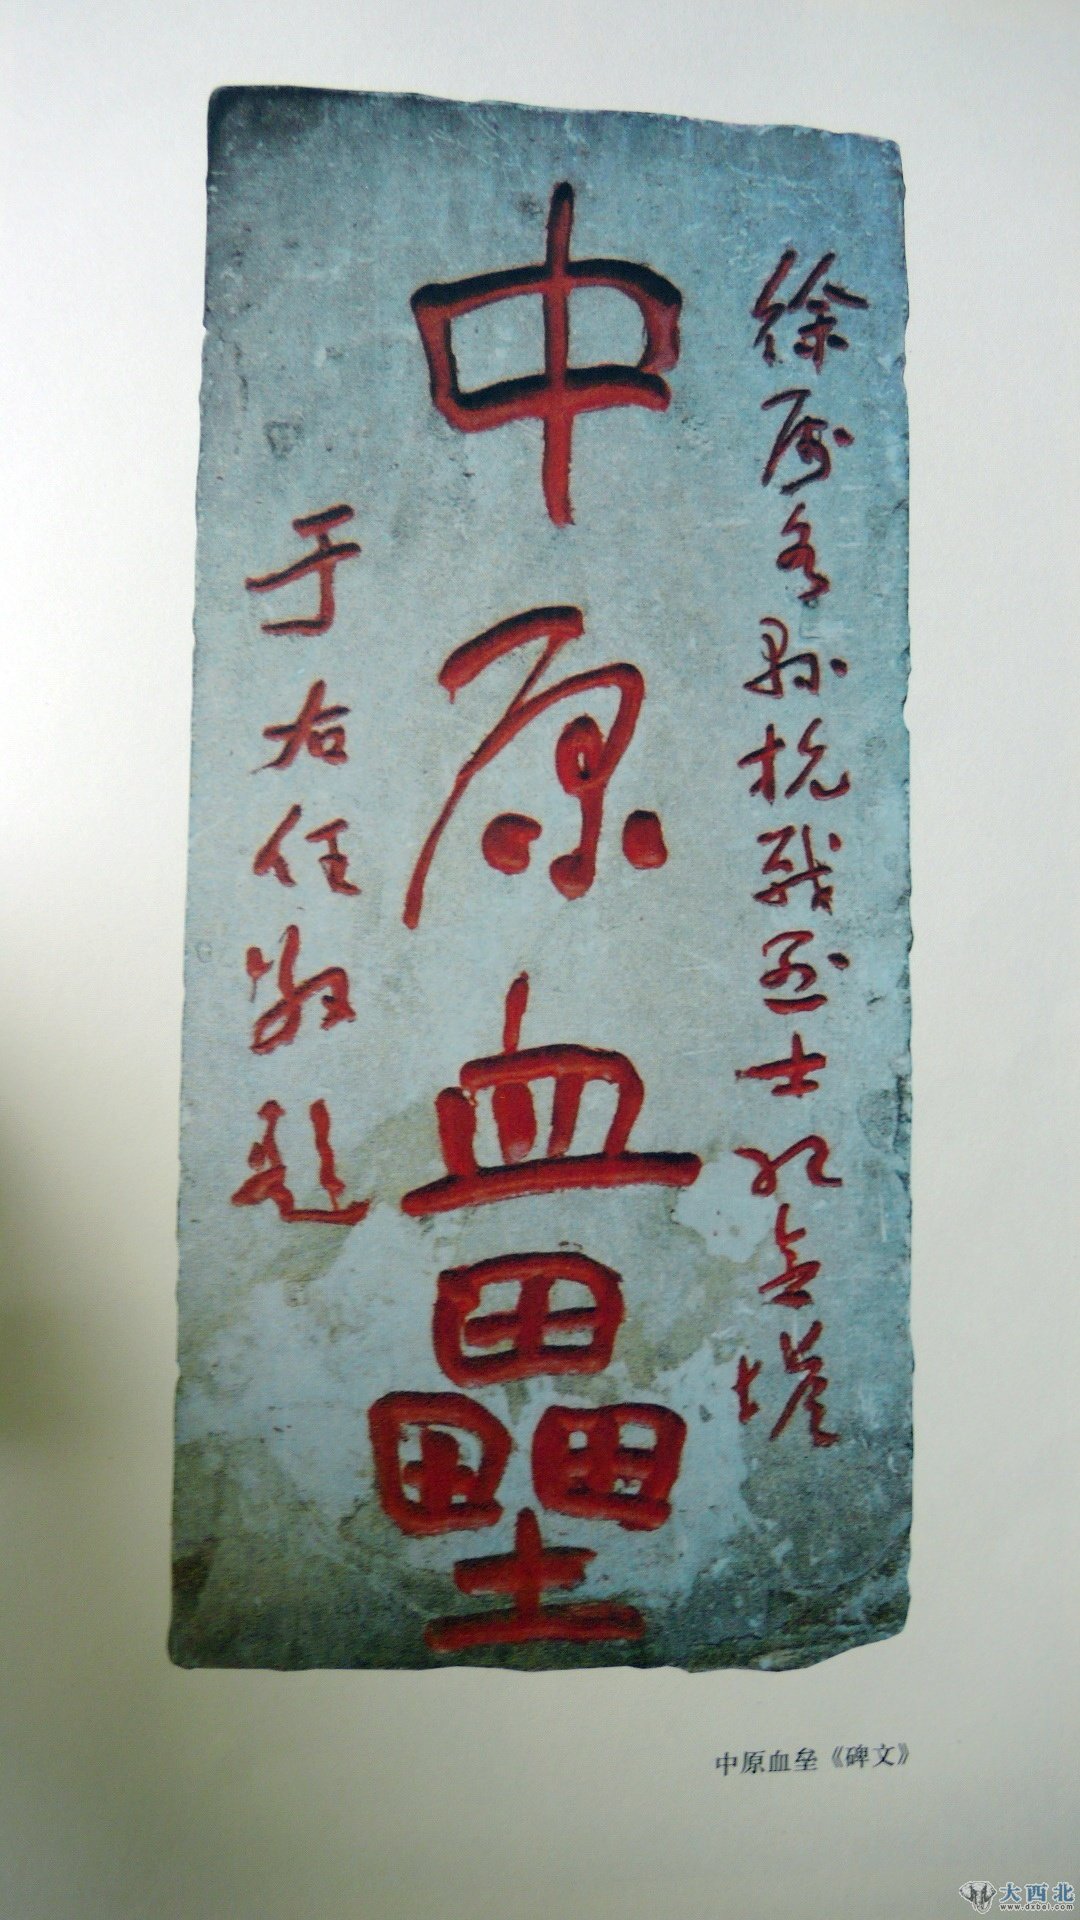 徐属各县抗战烈士纪念塔
中原血壘
于右任敬题
中原血垒《碑文》
大西北
www.dxbei.com